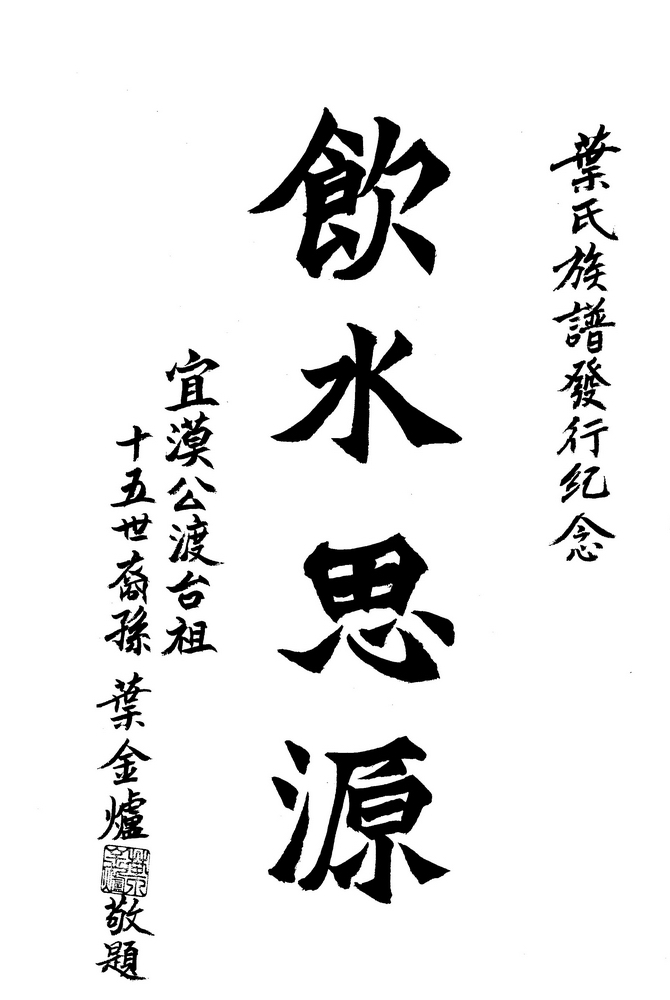 葉氏族譜發行纪念
飲水思源
宜漠公渡台祖
十五世裔孫 葉金爐 敬題